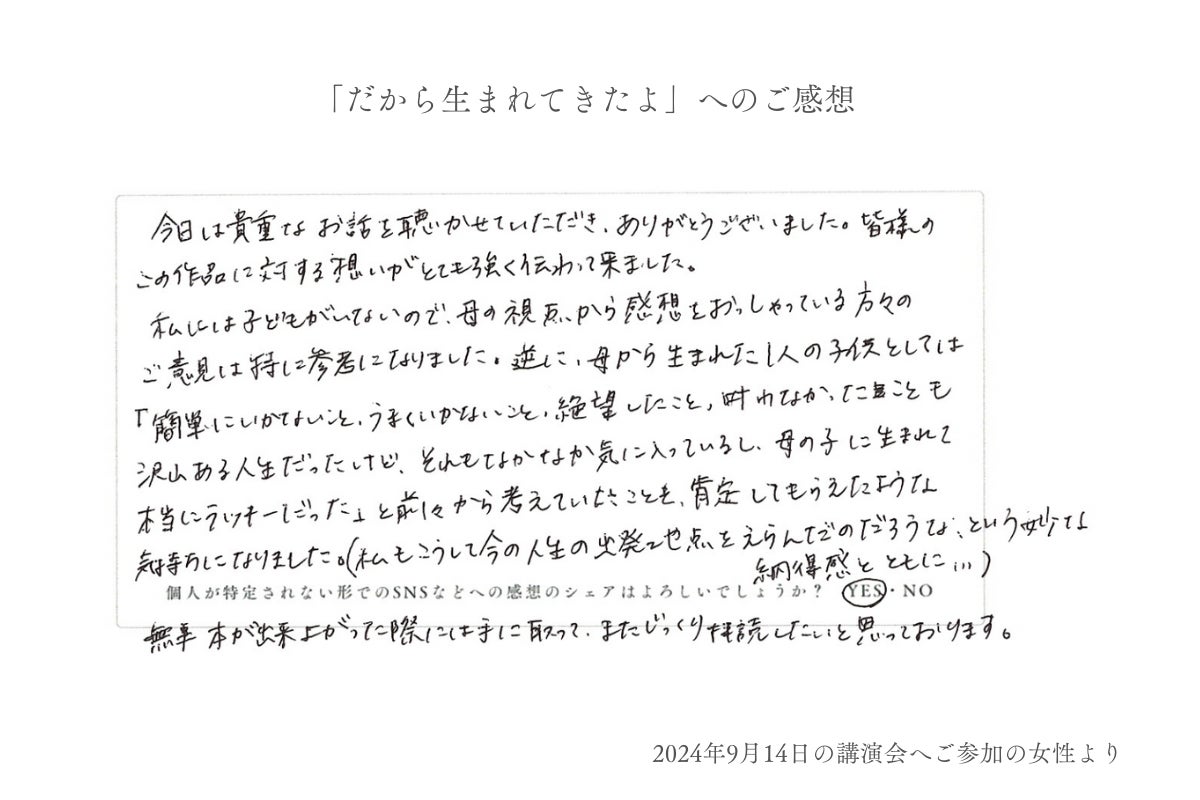 「だから生まれてきたよ」へのご感想
今日は貴重なお話を聴かせていただき、ありがとうございました。皆様の
この作品に対する想いがとても強く伝わって来ました。
私には子どもがいないので、母の視点から感想をおっしゃっている方々の
ご意見は特に参考になりました。逆に、母から生まれた1人の子供としては
「簡単にいかないこと、うまくいかないこと、絶望したこと、叶わなかったことも
沢山ある人生だったけど、それもなかなか気に入っているし、母の子に生まれて
本当にラッキーだった」と前々から考えていたことを、肯定してもらえたような
気持ちになりました。(私もこうして今の人生の出発地点をえらんだのだろうな、という妙な
納得感とともに…)
個人が特定されない形でのSNSなどへの感想のシェアはよろしいでしょうか? YES・NO
無事本が出来上がった際には手に取って、またじっくり拝読したいと思っております。
2024年9月14日の講演会へご参加の女性より